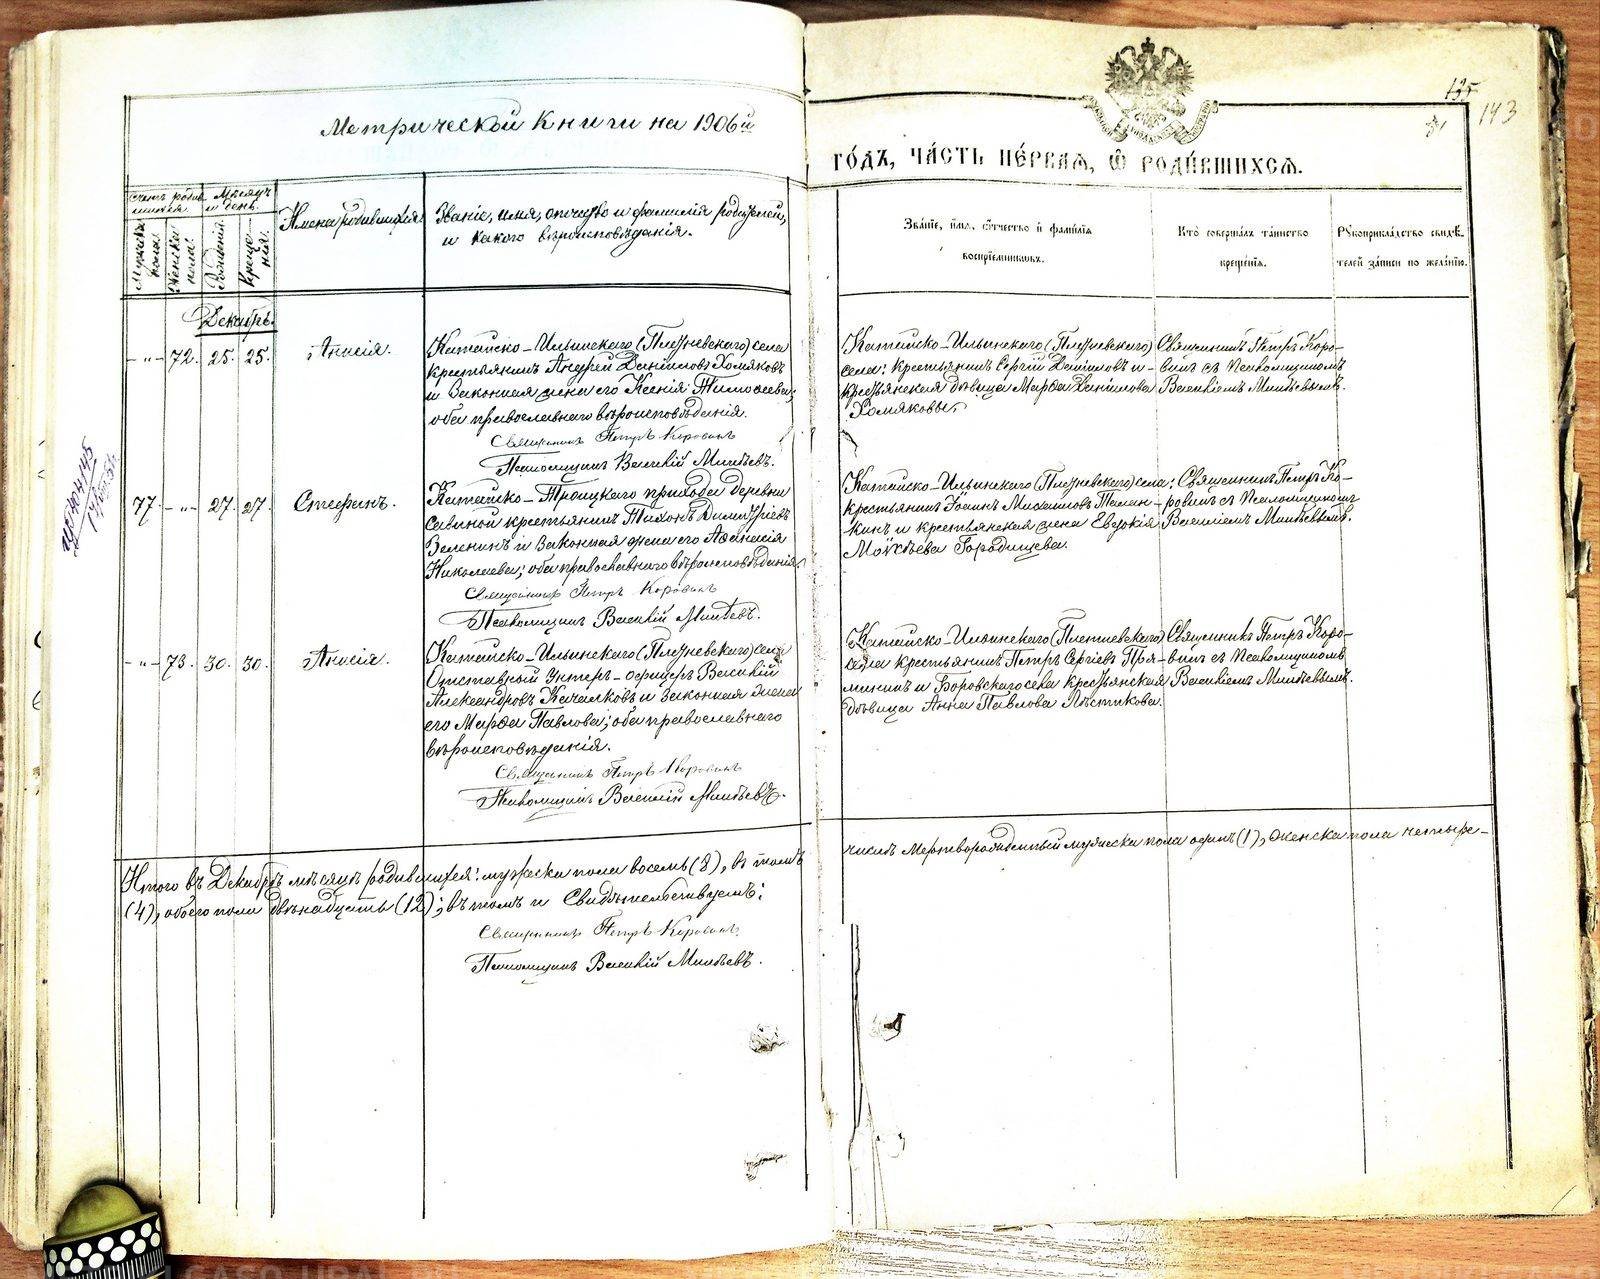 Метрической книги на 1906й
го́дъ, ча́сть пе́рвая, ѿ роди́вшихся.
135
143
Счетъ родив
шихся.
Мѣсяцъ
и день.
Мужска
пола.
Женска
пола.
Рождения.
Креще-
ния.
Имена родившихся.
Званіе, имя, отчество и фамилія родителей,
и какого вѣроисповѣданія.
Зва́ніе, и́мя, ѻ́тчество и҆ фами́лія
воспріе́мниковъ.
Кто̀ соверша́лъ та́инство
креще́нія.
Рукоприкла́дство свидѣ́-
телей за́писи по жела́нію.
Декабрь.
- " - 72. 25. 25.
Анисія.
Катайско-Ильинскаго (Плетневскаго) села
крестьянинъ Андрей Даніиловъ Хомяковъ
и законная жена его Ксенія Тимофеева;
оба православнаго вѣроисповѣданія.
Священникъ Петръ Коровинъ
Псаломщикъ Василій Минѣевъ.
Катайско-Ильинскаго (Плетневскаго)
села: крестьянинъ Сергій Даніиловъ и
крестьянская дѣвица Марѳа Даніилова
Хомяковы.
Священникъ Петръ Коро-
винъ съ псаломщикомъ
Василіемъ Минѣевымъ.
77. - " - 27. 27.
Стефанъ.
Катайско-Троицкаго прихода деревни
Савиной крестьянинъ Тихонъ Димитріевъ
Зеленинъ и законная жена его Аѳанасія
Николаева; оба православнаго вѣроисповѣданія.
Священникъ Петръ Коровинъ
Псаломщикъ Василій Минѣевъ.
Катайско-Ильинскаго (Плетневскаго) села:
крестьянинъ Іоаннъ Михаиловъ
и крестьянская жена Евдокія
Мокѣева Городищева.
Священникъ Петръ Ко-
ровинъ съ псаломщикомъ
Василіемъ Минѣевымъ.
- " - 73. 30. 30.
Анисія.
Катайско-Ильинскаго (Плетневскаго) села
Отставный унтеръ-офицеръ Василій
Александровъ Качалковъ и законная жена
его Марѳа Павлова; оба православнаго
вѣроисповѣданія.
Священникъ Петръ Коровинъ
Псаломщикъ Василій Минѣевъ.
Катайско-Ильинскаго (Плетневскаго)
села крестьянинъ Петръ Сергіевъ Пря-
мининъ и Боровскаго села крестьянская
дѣвица Анна Павлова Пѣстикова.
Священникъ Петръ Коро-
винъ съ псаломщикомъ
Василіемъ Минѣевымъ.
Итого въ Декабрѣ мѣсяцѣ родившихся: мужска пола восемь (8), въ томъ
числѣ мертворожденный мужска пола одинъ (1), женска пола четыре
(4), обоего пола двѣнадцать (12); въ томъ и свидѣтельствуемъ:
Священникъ Петръ Коровинъ
Псаломщикъ Василій Минѣевъ.